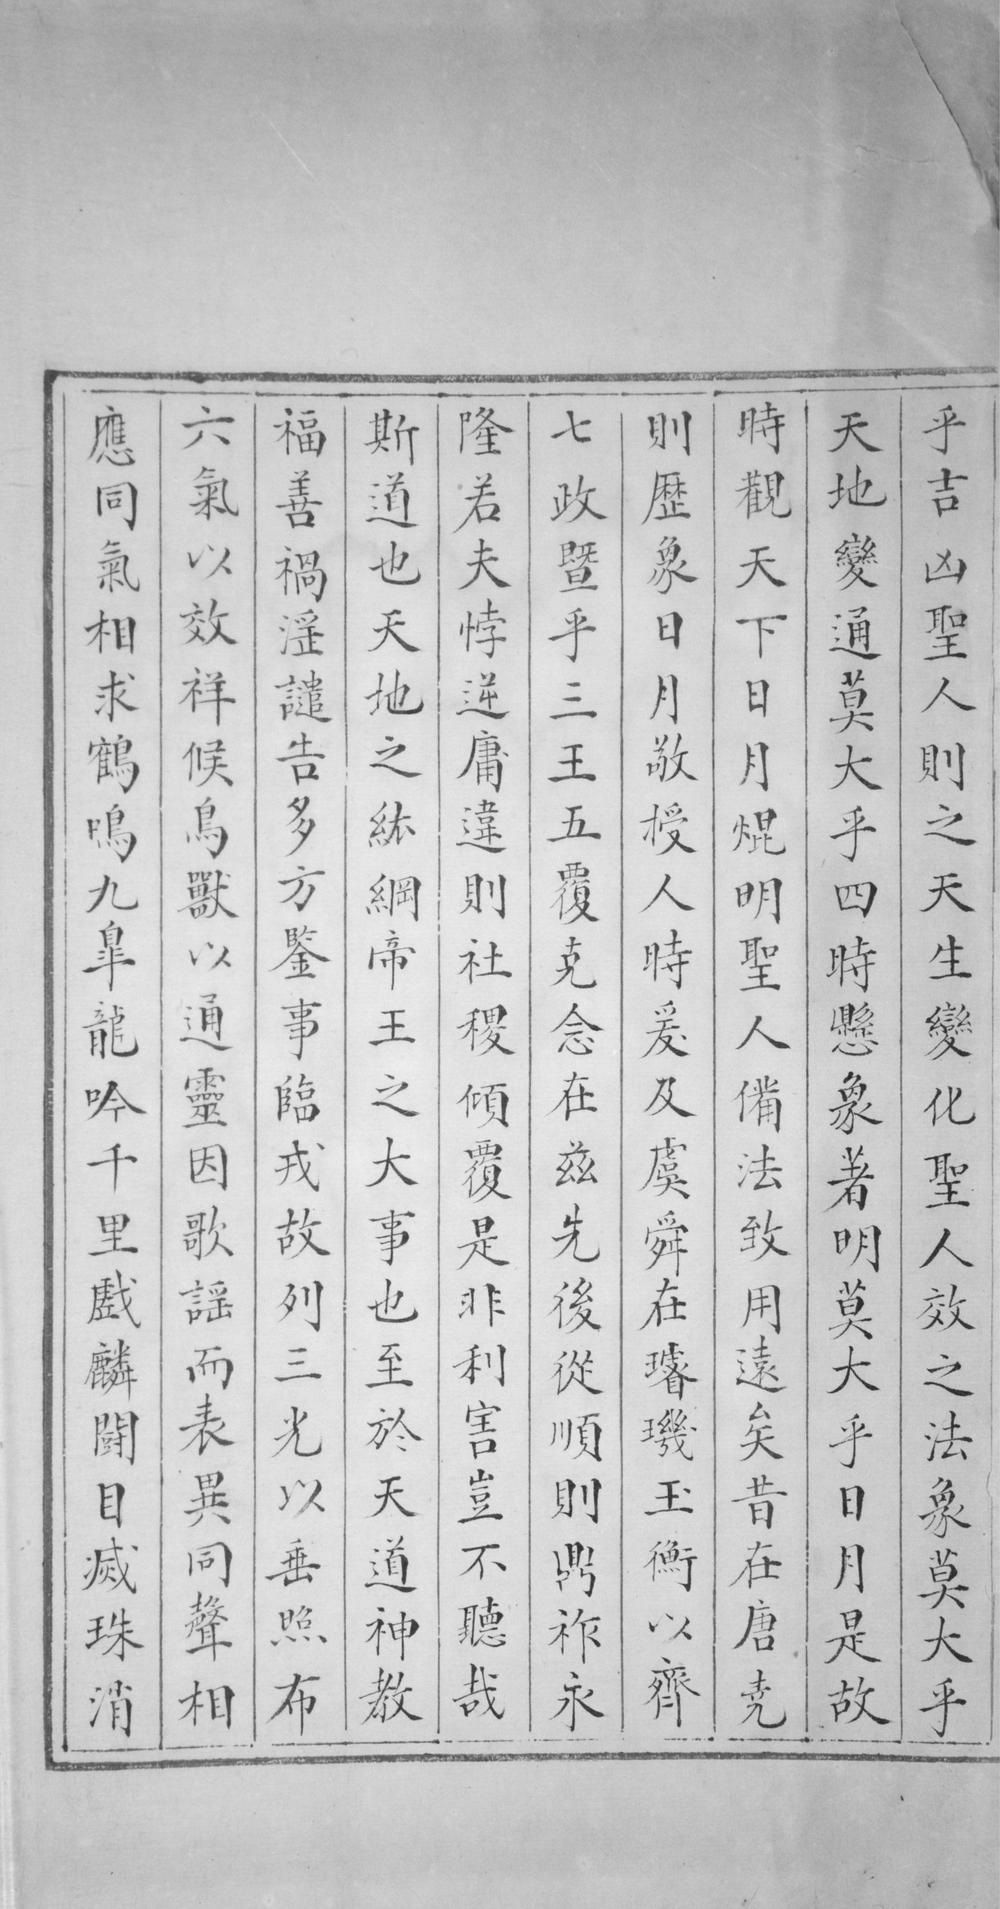 乎吉凶聖人則之天生變化聖人效之法象莫大乎
天地變通莫大乎四時懸象著明莫大乎日月是故
時觀天下日月焜明聖人備法致用遠矣昔在唐堯
則歷象日月敬授人時爰及虞舜在璿璣玉衡以齊
七政暨乎三王五覆克念在茲先後從順則鼎祚永
隆若夫悖逆庸違則社稷傾覆是非利害豈不聽哉
斯道也天地之綋綱帝王之大事也至於天道神教
福善禍淫譴告多方鑒事臨戎故列三光以垂照布
六氣以效祥候鳥獸以通靈因歌謡而表異同聲相
應同氣相求鶴鳴九臯龍吟千里戲麟鬪目滅珠消